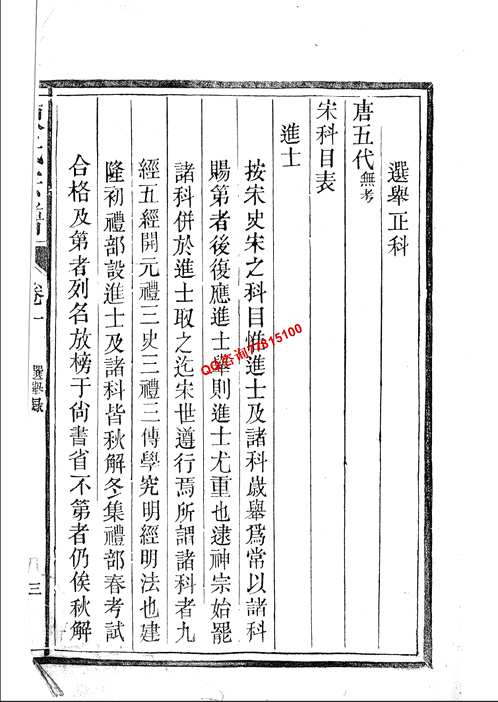 選舉正科
唐五代無考
宋科目表
進士
按宋史宋之科目惟進士及諸科歲舉爲常以諸科
賜第者後復應進士舉則進士尤重也逮神宗始罷
諸科併於進士取之迄宋世遵行焉所謂諸科者九
經五經開元禮三史三禮三傳學究明經明法也建
隆初禮部設進士及諸科皆秋解冬集禮部春考試
合格及第者列名放榜于尙書省不第者仍俟秋解
卷一
選舉錄
三
QQ咨询77815100